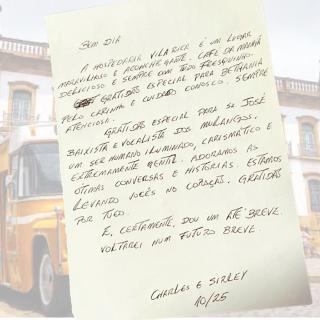 BOM DIA
A HOSPEDARIA VILA RICA É UM LUGAR
MARAVILHOSO E ACONCHEGANTE. CAFÉ DA MANHÃ
DELICIOSO E SEMPRE COM TUDO FRESQUINHO.
GRATIDÃO ESPECIAL PARA BETHANIA
PELO CARINHO E CUIDADO CONOSCO, SEMPRE
ATENCIOSA.
GRATIDÃO ESPECIAL PARA SR JOSÉ
BAIXISTA E VOCALISTA DOS MURLANGOS,
UM SER HUMANO ILUMINADO, CARISMÁTICO E
EXTREMAMENTE GENTIL. ADORAMOS AS
ÓTIMAS CONVERSAS E HISTÓRIAS. ESTAMOS
LEVANDO VOCÊS NO CORAÇÃO. GRATIDÃO
POR TUDO.
E, CERTAMENTE, DOU UM ATÉ BREVE.
VOLTAREI NUM FUTURO BREVE.
CHARLES E SIRLEY
10/25